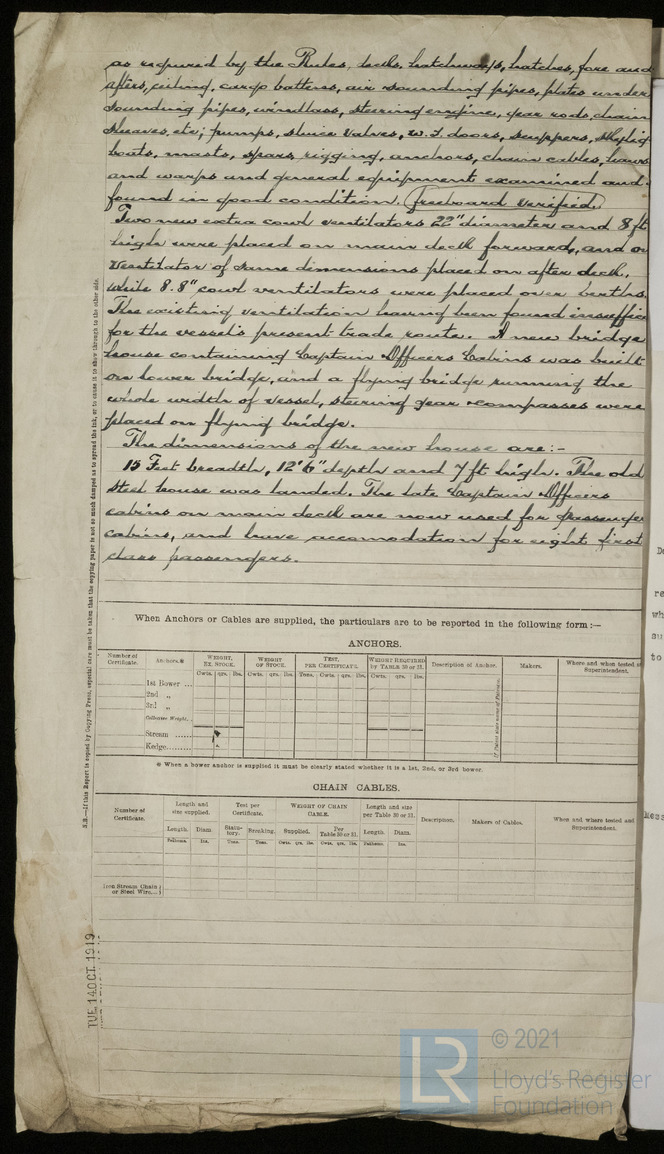 as required by the Rules, decks, hatchways, hatches, fore and
afters, ceiling, cargo battens, air sounding pipes, plates under
sounding pipes, windlass, steering engine, gear rods, chain
sheaves, etc; pumps, sluice valves, w.t. doors, scuppers,
boats, masts, spars, rigging, anchors, chain cables, haws
and warps and general equipment examined and
found in good condition. Freeboard Verified.
Two new extra cowl ventilators 22" diameter and 8 ft
high were placed on main deck forward, and on
Ventilator of same dimensions placed on after deck,
while 8. 8" cowl ventilators were placed over berths.
The existing ventilation having been found insuffic
for the vessel's present trade route. A new bridge
house containing Captain Officers Cabins was built
on lower bridge, and a flying bridge running the
whole width of vessel, steering gear compasses were
placed on flying bridge.
The dimensions of the new house are:-
15 Feet breadth, 12'6" depth and 7 ft high. The old
steel house was landed. The late Captain Officers
cabins on main deck are now used for passenger
cabins, and have accomodation for eight first
class passengers.
N.B.—If this Report is copied by Copying Press, especial care must be taken that the copying paper is not so much damped as to spread the ink, or to cause it to show through to the other side.
When Anchors or Cables are supplied, the particulars are to be reported in the following form :—
ANCHORS.
Number of Certificate. Anchors.* WEIGHT, EX. STOCK. WEIGHT OF STOCK. TEST, PER CERTIFICATE. WEIGHT REQUIRED BY TABLE 30 or 31. Description of Anchor. Makers. Where and when tested Superintendent.
Cwts. qrs. lbs. Cwts. qrs. lbs. Tons. Cwts. qrs. lbs. Cwts. qrs. lbs.
1st Bower ...
2nd „
3rd „
Collective Weight.
Stream ......
Kedge.........
* When a bower anchor is supplied it must be clearly stated whether it is a 1st, 2nd, or 3rd bower.
CHAIN CABLES.
Number of Certificate. Length and size supplied. Test per Certificate. WEIGHT OF CHAIN CABLE. Length and size per Table 30 or 31. Description. Makers of Cables. When and where tested and Superintendent.
Length. Diam. Statutory. Breaking. Supplied. Per Table 30 or 31. Length. Diam.
Fathoms. Ins. Tons. Tons. Cwts. qrs. lbs. Cwts. qrs. lbs. Fathoms. Ins.
Iron Stream Chain
or Steel Wire...
TUE. 14 OCT. 1919
LR
© 2021
Lloyd's Register
Foundation